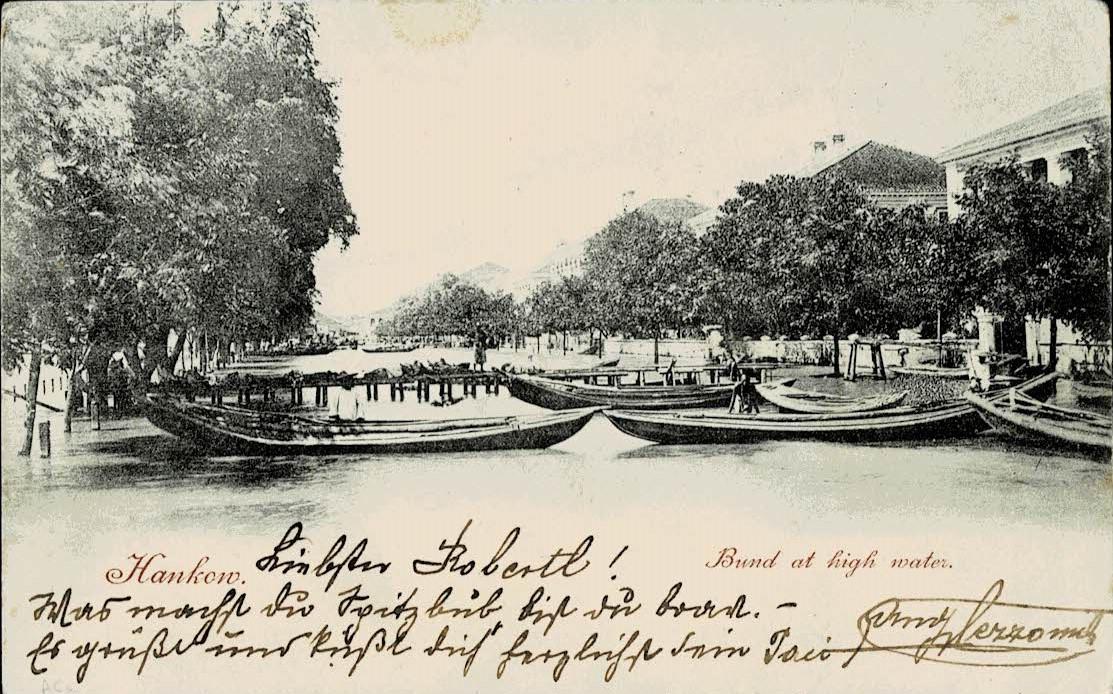 Hankow. Liebster Robertl! Bund at high water.
Was machst du Spitzbub, bist du brav. –
Es grüßt und küßt dich herzlichst dein